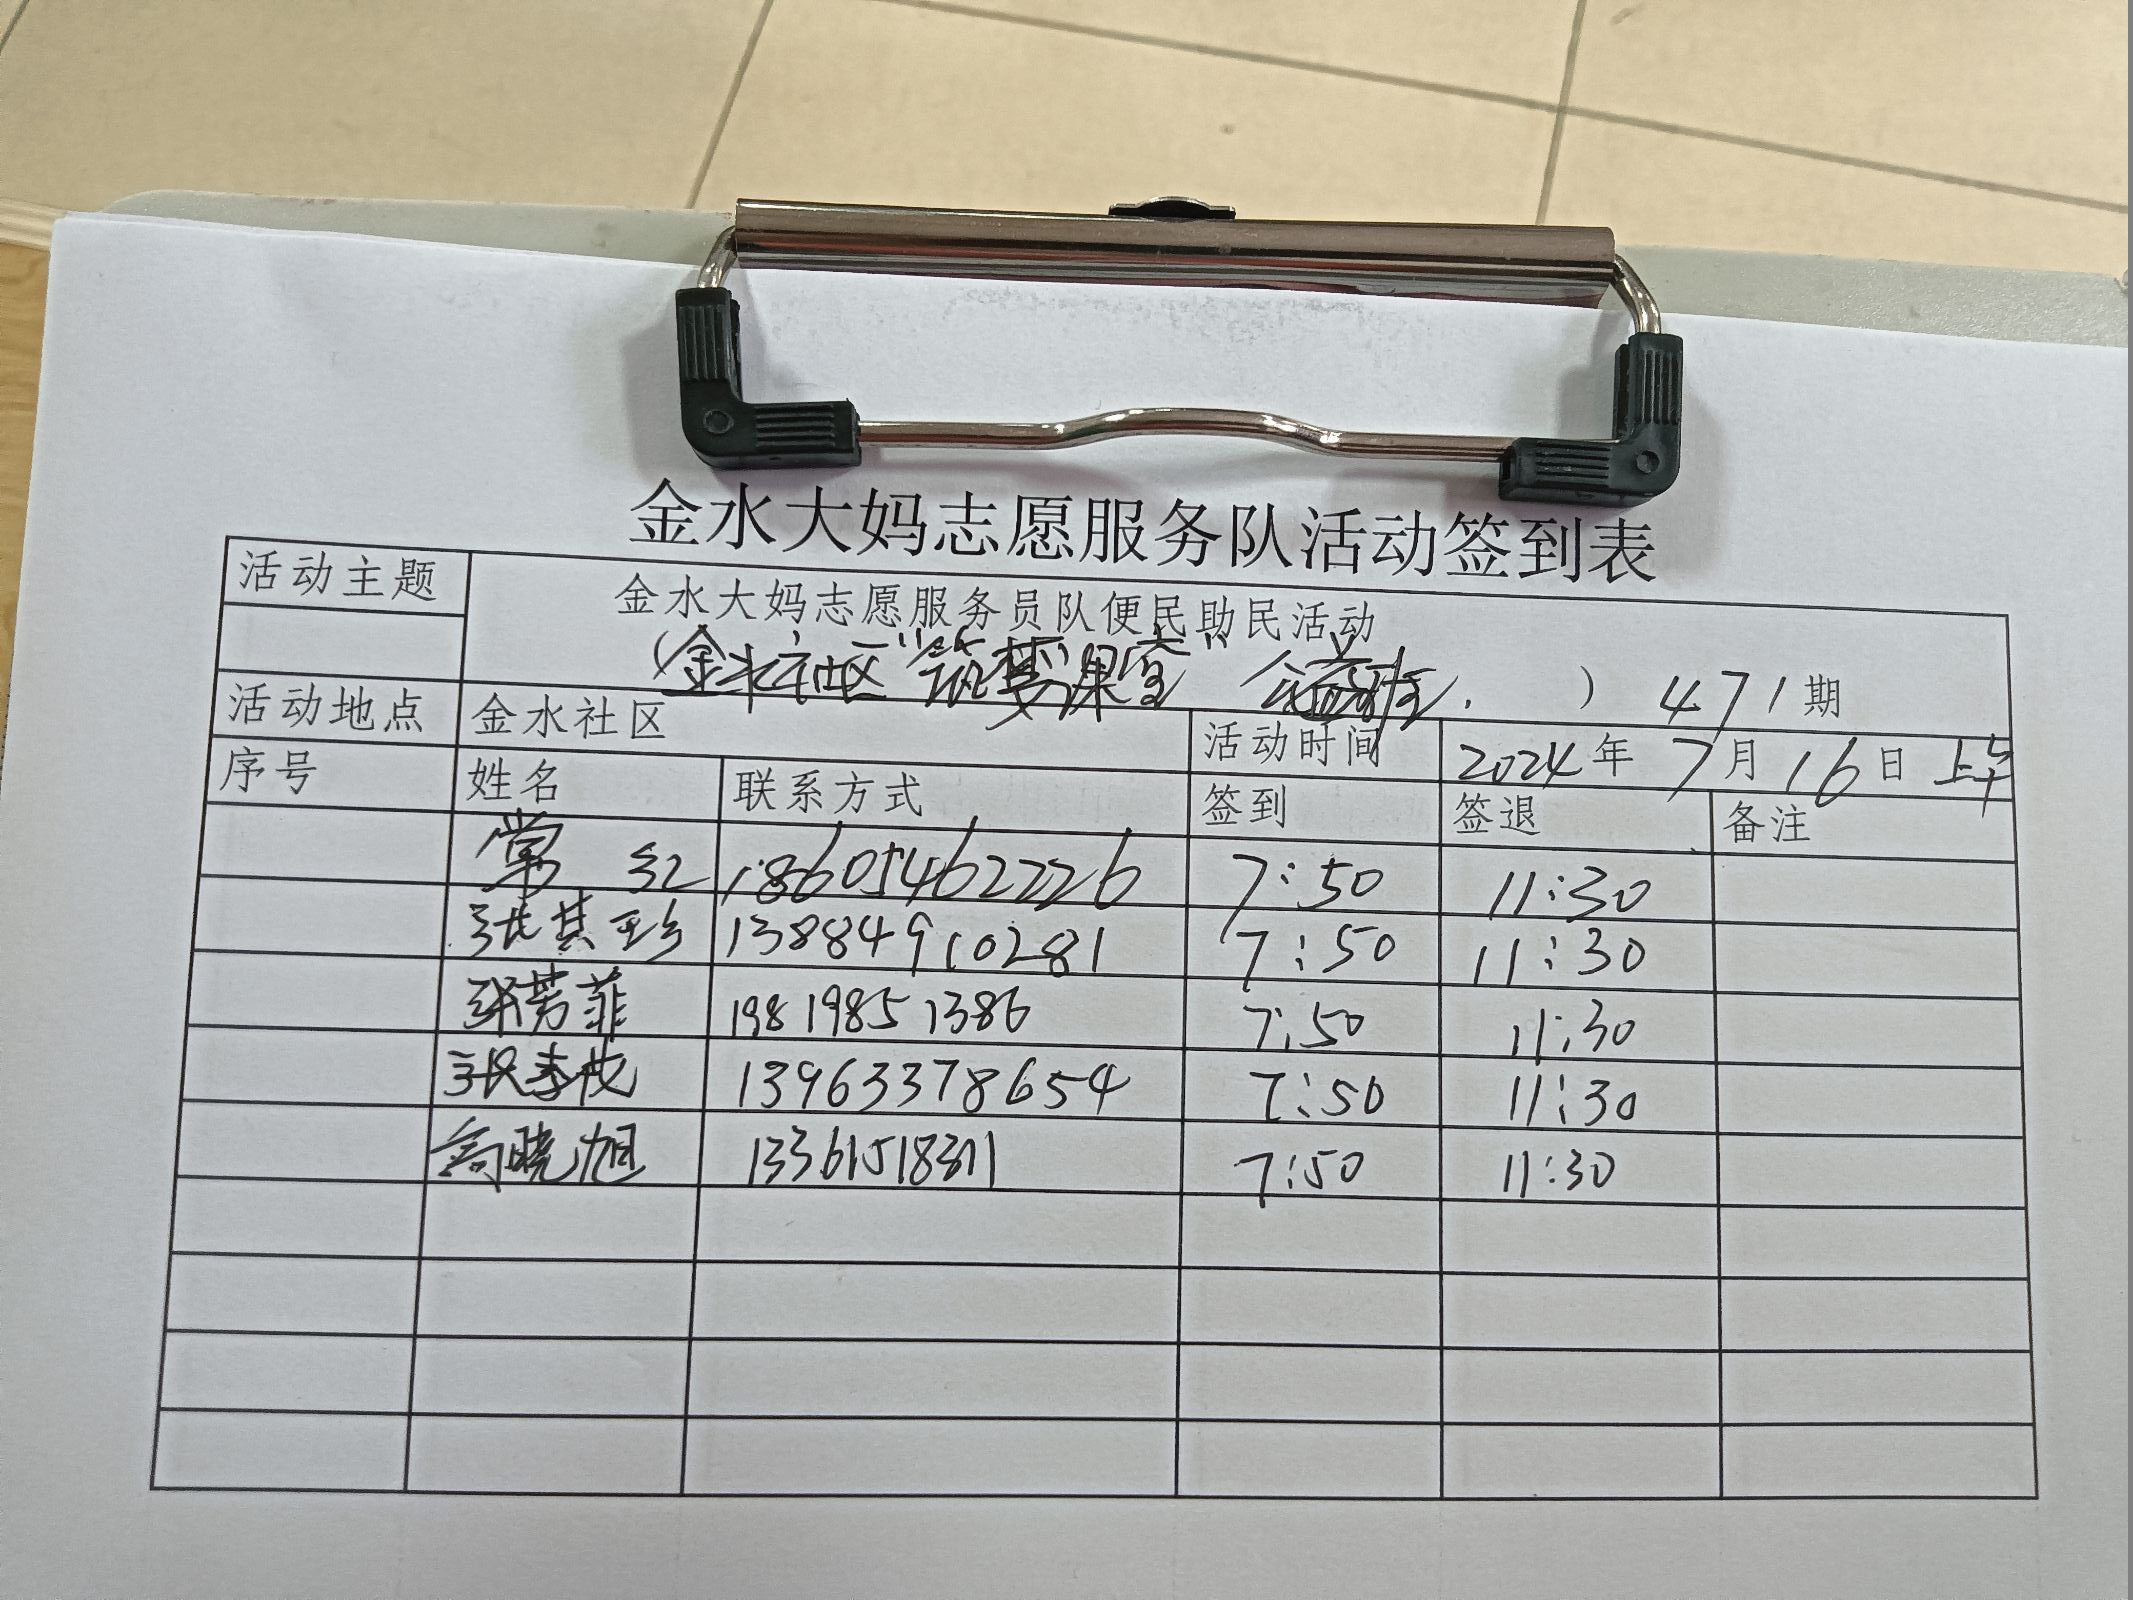 金水大妈志愿服务队活动签到表
活动主题 金水大妈志愿服务员队便民助民活动
(金水社区"筑梦课堂" 公益班. ) 471期
活动地点 金水社区 活动时间 2024年7月16日 上午
序号 姓名 联系方式 签到 签退 备注
常红 18605462226 7:50 11:30
张其珍 13884910281 7:50 11:30
张芳菲 19819851386 7:50 11:30
张春 13963378654 7:50 11:30
高晓旭 13361518311 7:50 11:30